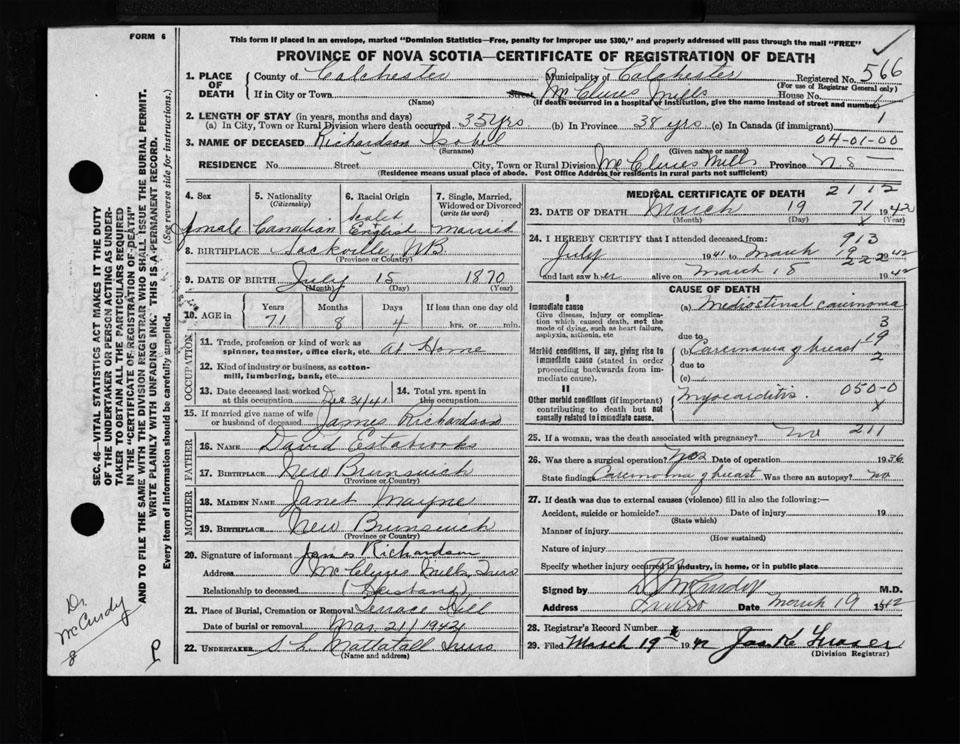 FORM 6
This form if placed in an envelope, marked "Dominion Statistics—Free, penalty for improper use $300," and properly addressed will pass through the mail "FREE"
PROVINCE OF NOVA SCOTIA—CERTIFICATE OF REGISTRATION OF DEATH
SEC. 46—VITAL STATISTICS ACT MAKES IT THE DUTY
OF THE UNDERTAKER OR PERSON ACTING AS UNDER-
TAKER TO OBTAIN ALL THE PARTICULARS REQUIRED
IN THE "CERTIFICATE OF REGISTRATION OF DEATH"
AND TO FILE THE SAME WITH THE DIVISION REGISTRAR WHO SHALL ISSUE THE BURIAL PERMIT.
WRITE PLAINLY WITH UNFADING INK. THIS IS A PERMANENT RECORD.
Every item of information should be carefully supplied. (See reverse side for instructions.)
Dr.
McCurdy
8
P
1. PLACE OF DEATH County of Colchester Municipality of Colchester Registered No. 566
(For use of Registrar General only)
If in City or Town Street McClures Mills House No. 1
(Name) (If death occurred in a hospital or institution, give the name instead of street and number)
2. LENGTH OF STAY (in years, months and days) 1
(a) In City, Town or Rural Division where death occurred 35 yrs (b) In Province 38 yrs (c) In Canada (if immigrant)
3. NAME OF DECEASED Richardson Isobel 04-01-00
(Surname) (Given name or names)
RESIDENCE No. Street City, Town or Rural Division McClures Mills Province N S
(Residence means usual place of abode. Post Office Address for residents in rural parts not sufficient)
4. Sex
female
5. Nationality
(Citizenship)
Canadian
6. Racial Origin
Scotch
English
7. Single, Married,
Widowed or Divorced
(write the word)
married
8. BIRTHPLACE Sackville NB
(Province or Country)
9. DATE OF BIRTH July 15 1870
(Month) (Day) (Year)
10. AGE in Years Months Days If less than one day old
71 8 4 hrs. or min.
OCCUPATION
11. Trade, profession or kind of work as
spinner, teamster, office clerk, etc. At Home
12. Kind of industry or business, as cotton-
mill, lumbering, bank, etc.
13. Date deceased last worked
at this occupation Dec 31/41
14. Total yrs. spent in
this occupation
15. If married give name of wife
or husband of deceased James Richardson
FATHER
16. NAME David Estabrooks
17. BIRTHPLACE New Brunswick
(Province or Country)
MOTHER
18. MAIDEN NAME Janet Mayne
19. BIRTHPLACE New Brunswick
(Province or Country)
20. Signature of informant James Richardson
Address McClures Mills, Truro
Relationship to deceased (Husband)
21. Place of Burial, Cremation or Removal Terrace Hill
Date of burial or removal Mar. 21/1942
22. UNDERTAKER S. L. Mattatall Truro
(Name and address)
MEDICAL CERTIFICATE OF DEATH 21 12
23. DATE OF DEATH March 19 71 1942
(Month) (Day) X
24. I HEREBY CERTIFY that I attended deceased from: 913
July 1941 to March 19 1942
and last saw her alive on March 18 1942
CAUSE OF DEATH
I
Immediate cause
Give disease, injury or complica-
tion which caused death, not the
mode of dying, such as heart failure,
asphyxia, asthenia, etc
(a) Mediastinal carcinoma
3
due to 19
Morbid conditions, if any, giving rise to
immediate cause (stated in order
proceeding backwards from im-
mediate cause).
(b) Carcinoma of breast
2
due to
(c)
II
Other morbid conditions (if important)
contributing to death but not
causally related to immediate cause.
Myocarditis. 050-0
X
25. If a woman, was the death associated with pregnancy? no 211
26. Was there a surgical operation? Yes Date of operation 1936
State finding Carcinoma of breast Was there an autopsy? no
27. If death was due to external causes (violence) fill in also the following:—
Accident, suicide or homicide? Date of injury 19
(State which)
Manner of injury
(How sustained)
Nature of injury
Specify whether injury occurred in industry, in home, or in public place
Signed by McCurdy M.D.
Address Truro Date March 19 1942
28. Registrar's Record Number
29. Filed March 19 1942 Fraser
(Division Registrar)